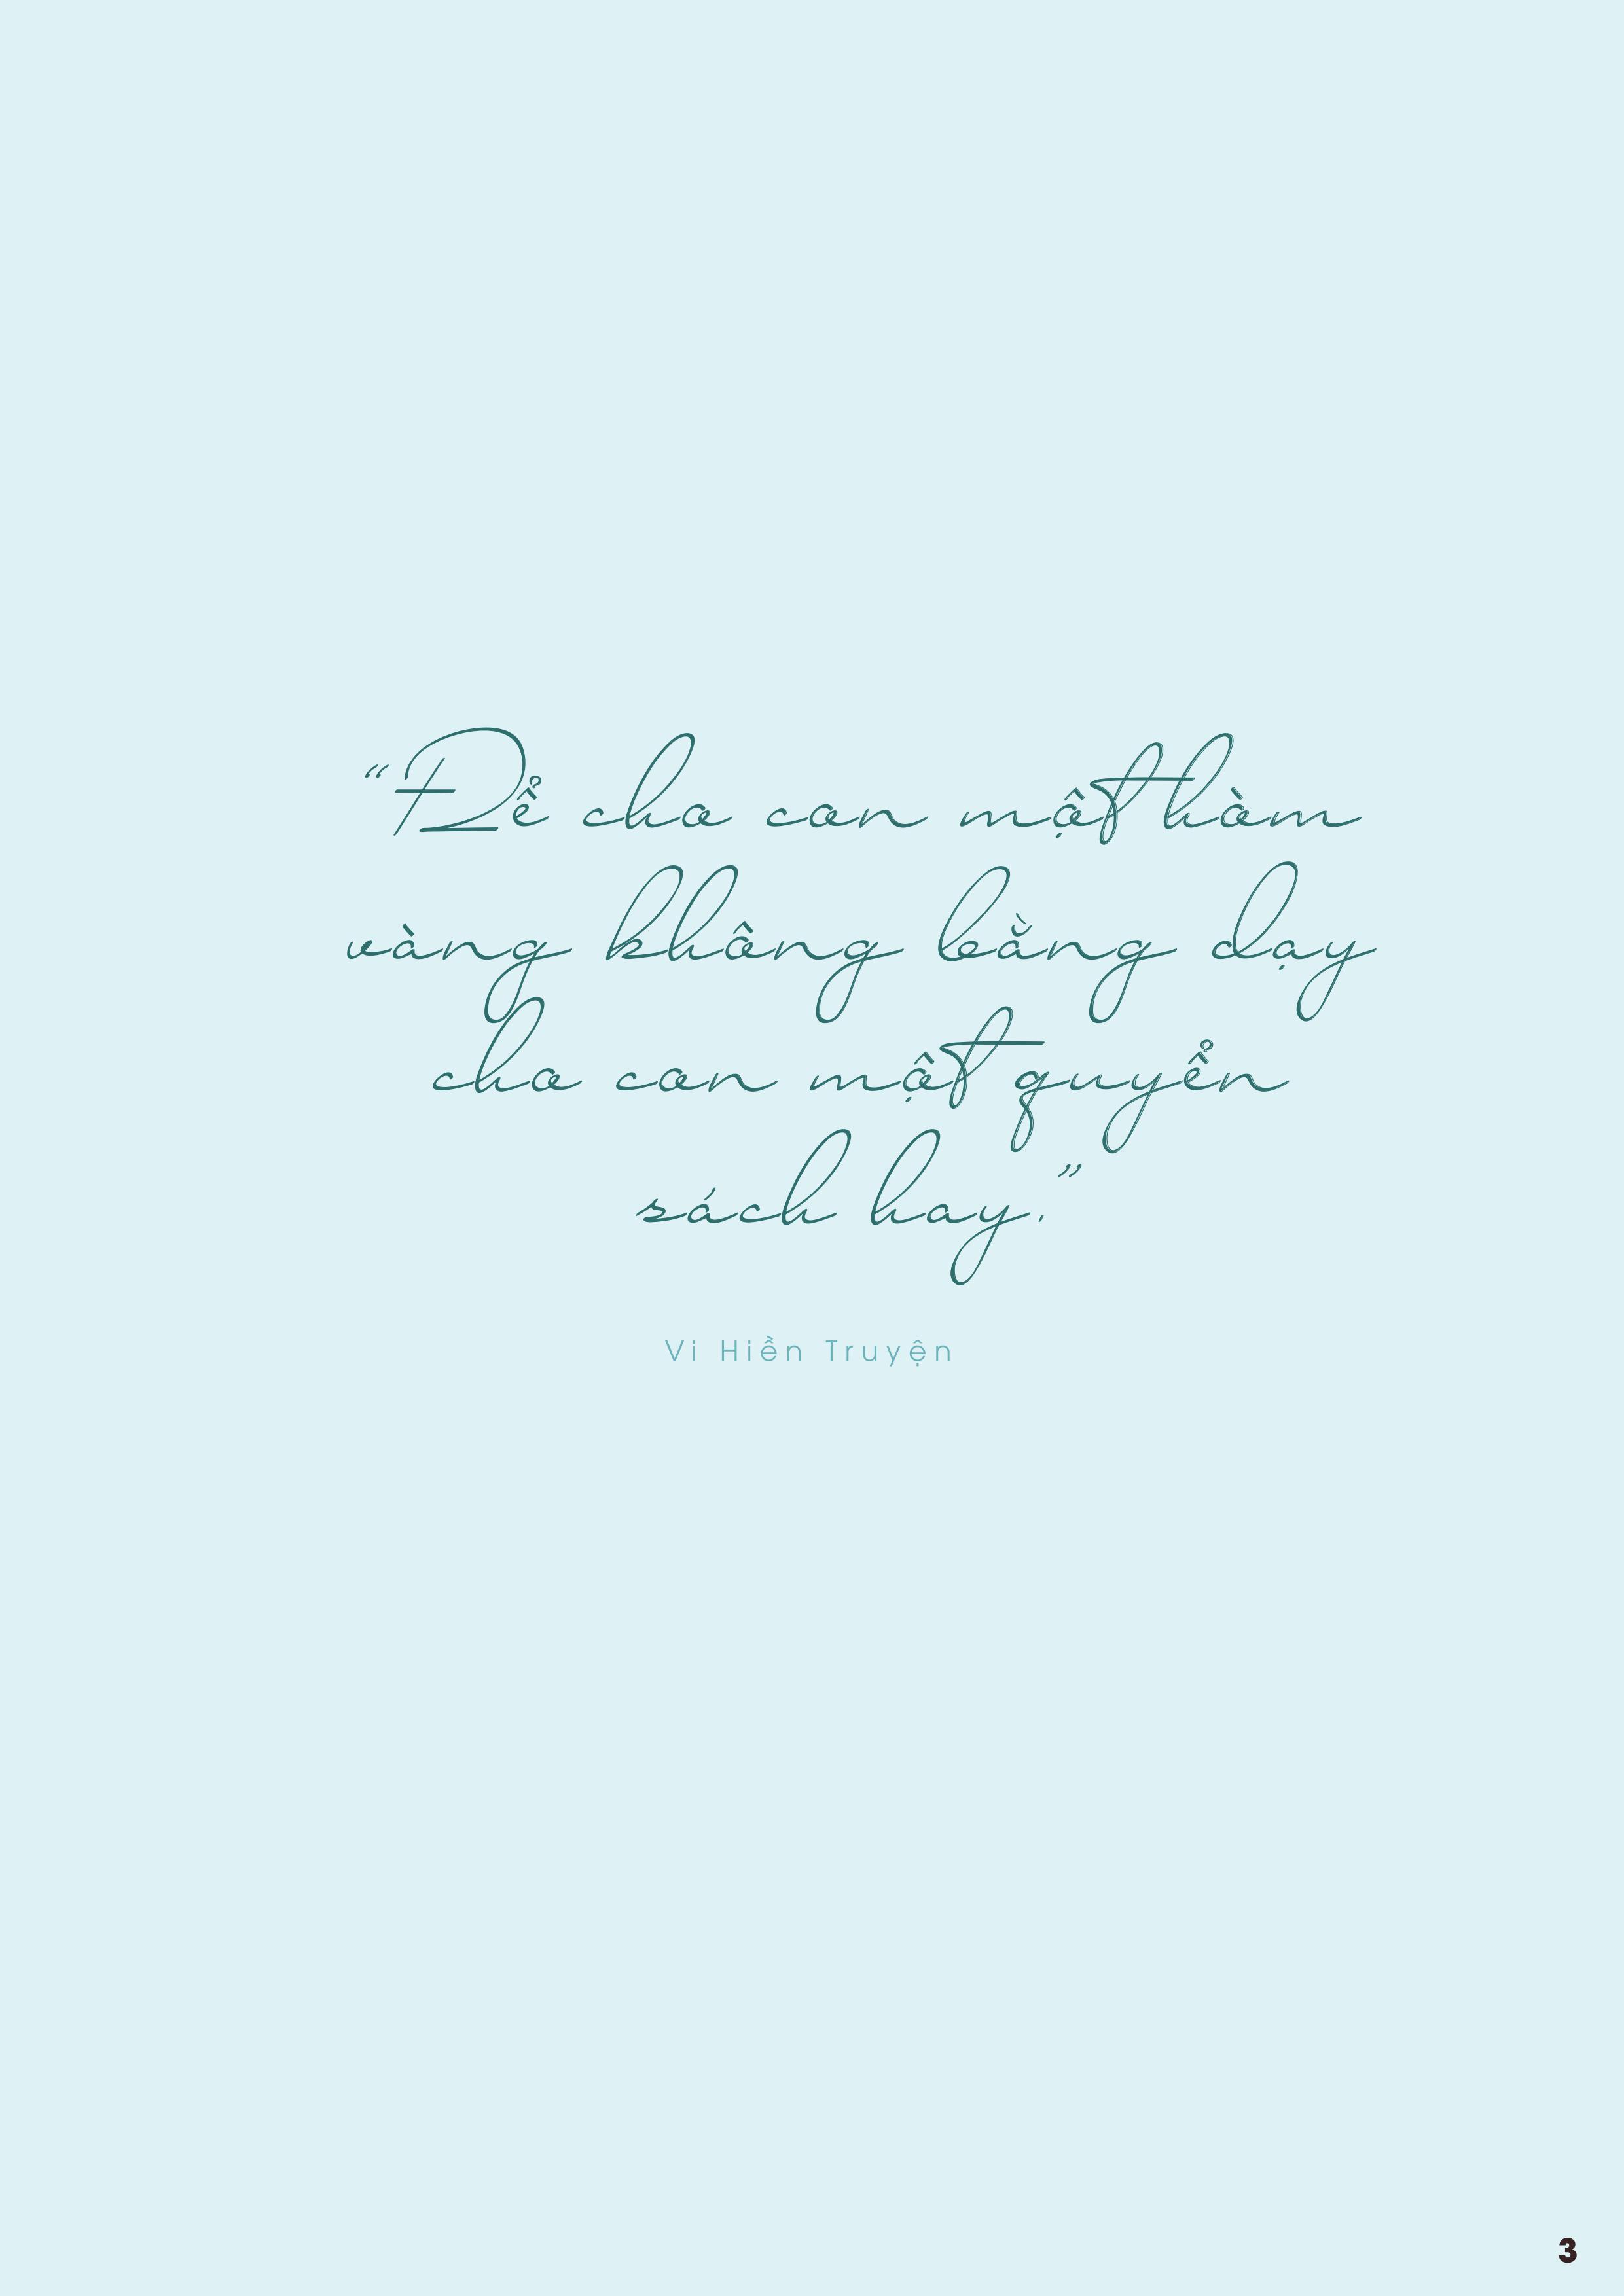 “Để cho con một hòm
vàng không bằng dạy
cho con một quyển
sách hay.”
Vi Hiền Truyện
3